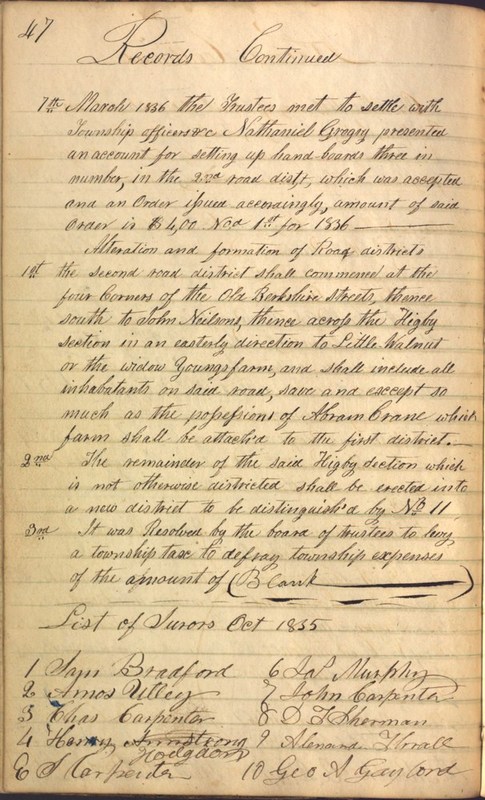 47
Records Continued
7th March 1836 the Trustees met to settle with
Township officers &c Nathaniel Grogry presented
an account for setting up hand boards three in
number, in the 2nd road dist, which was accepted
and an Order issued accordingly, amount of said
Order is $4,00 No,d 1st for 1836
Alteration and formation of Road districts
1st the second road district shall commence at the
four Corners of the Old Berkshire streets, thence
south to John Neilsons, thence across the Higby
section in an easterly direction to Little Walnut
or the widow Youngs farm, and shall include all
inhabatants on said road, save and except so
much as the possessions of Abram Crane which
farm shall be attach'd to the first district.
2nd The remainder of the said Higby section which
is not otherwise districted shall be erected into
a new district to be distinguish'd by No 11
3rd It was Resolved by the board of trustees to levy
a township tax to defray township expenses
of the amount of (Blank)
List of Jurors Oct 1835
1 Sam Bradford
2 Amos Utley
3 Chas Carpenter
4 Henry Armstrong
Hodgdon
6 S Carpenter
6 Jas Murphy
7 John Carpenter
8 D T Sherman
9 Thrall
10 Geo A Gaylord